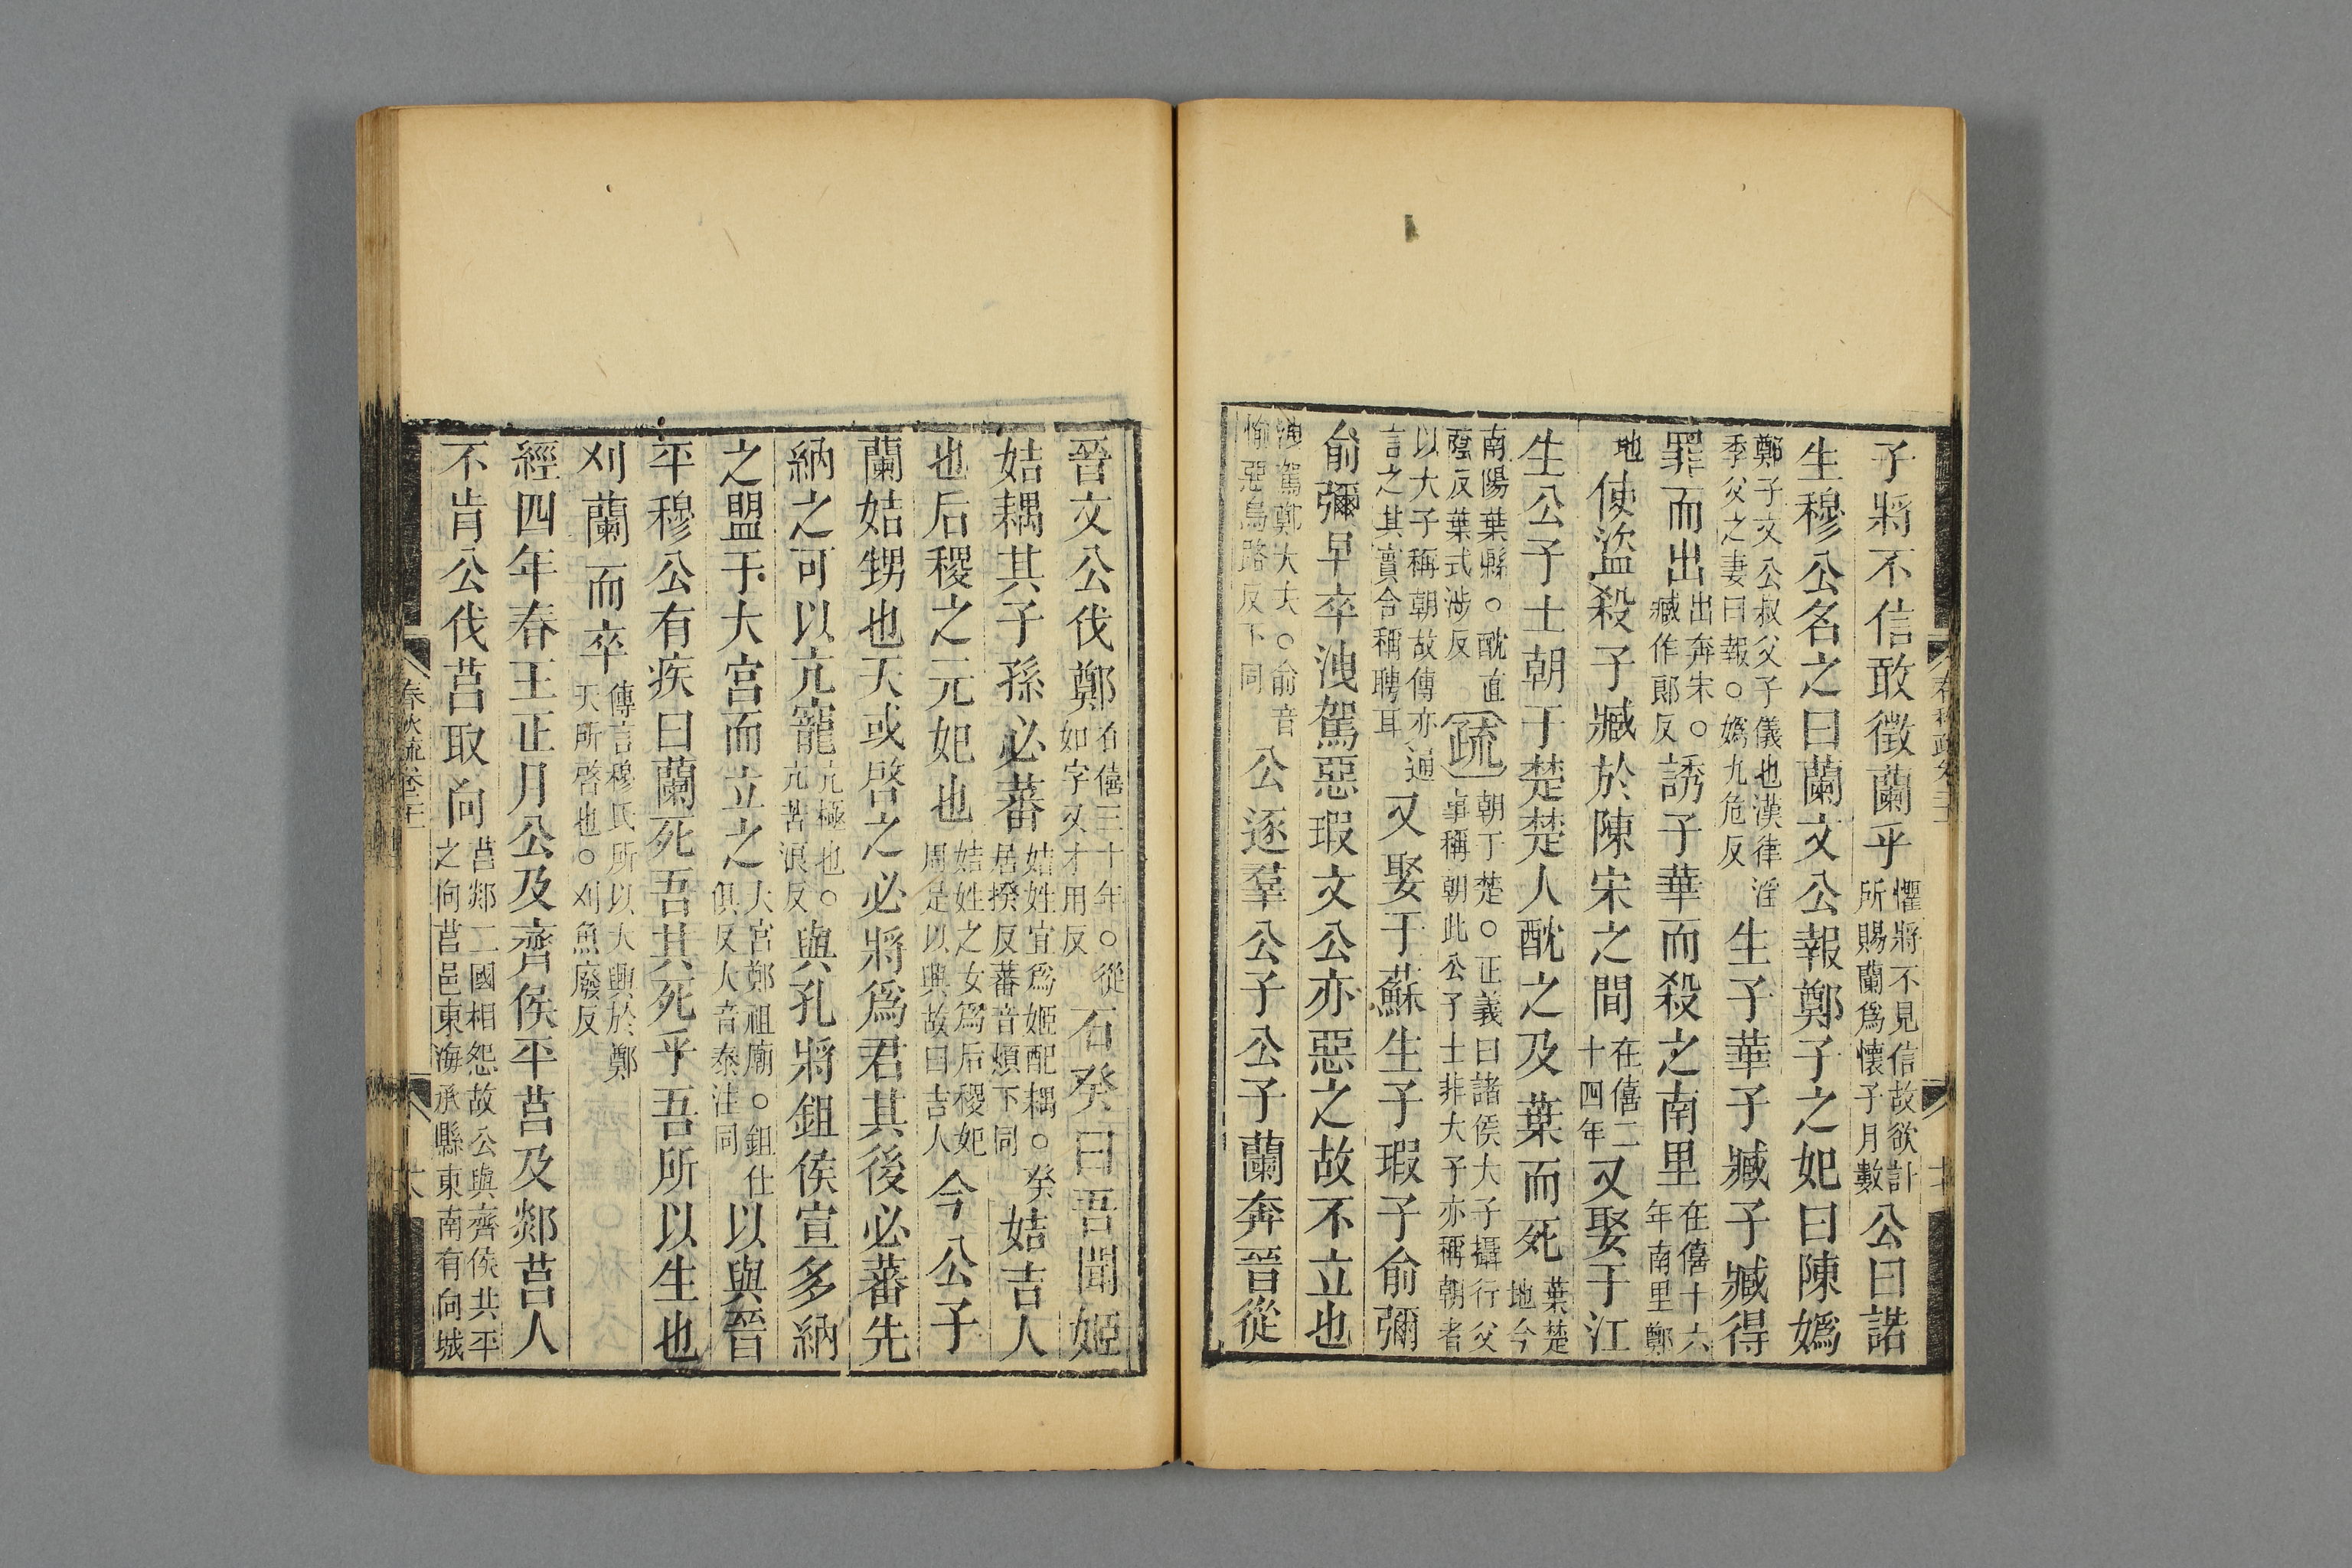 子將不信敢徵蘭乎懼將不見信故欲計所賜蘭爲懷子月數公曰諾
生穆公名之曰蘭文公報鄭子之妃曰陳嬀
鄭子文公叔父子儀也漢律淫季父之妻曰報○嬀九危反生子華子臧子臧得
罪而出出奔宋○臧作郎反誘子華而殺之南里在僖十六年南里鄭
地使盜殺子臧於陳宋之間在僖二十四年又娶于江
生公子士朝于楚楚人酖之及葉而死葉楚地今
南陽葉縣○酖直蔭反葉式涉反疏朝于楚○正義曰諸侯大子攝行父事稱朝此公子士非大子亦稱朝者
以大子稱朝故傳亦通言之其實合稱聘耳又娶于蘇生子瑕子俞彌
俞彌早卒洩駕惡瑕文公亦惡之故不立也
洩駕鄭大夫○俞音愉惡烏路反下同公逐羣公子公子蘭奔晉從
晉文公伐鄭在僖三十年○從如字又才用反石癸曰吾聞姬
姞耦其子孫必蕃姞姓宜爲姬配耦○癸居揆反蕃音煩下同姞吉人
也后稷之元妃也姞姓之女爲后稷妃周是以興故曰吉人今公子
蘭姞甥也天或啓之必將爲君其後必蕃先
納之可以亢寵亢極也○亢苦浪反與孔將鉏侯宣多納
之盟于大宮而立之大宮鄭祖廟○鉏仕俱反大音泰注同以與晉
平穆公有疾曰蘭死吾其死乎吾所以生也
刈蘭而卒傳言穆氏所以大興於鄭天所啓也○刈魚廢反
經四年春王正月公及齊侯平莒及郯莒人
不肯公伐莒取向莒郯二國相怨故公與齊侯共平之向莒邑東海承縣東南有向城
春秋疏卷二十一